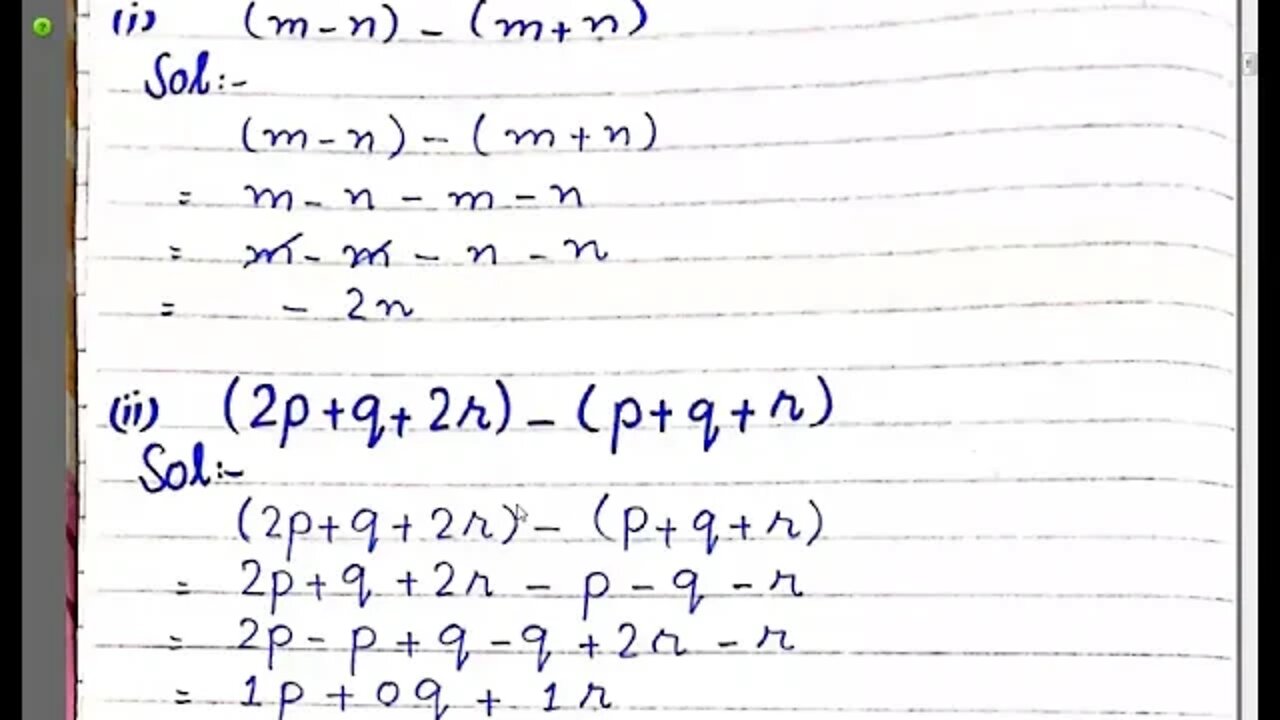 (i) (m-n) - (m+n)
Sol:-
(m-n) - (m+n)
= m - n - m - n
= m - m - n - n
= - 2n
(ii) (2p+q+2r) - (p+q+r)
Sol:-
(2p+q+2r) - (p+q+r)
= 2p+q+2r - p - q - r
= 2p - p + q - q + 2r - r
= 1p + 0q + 1r